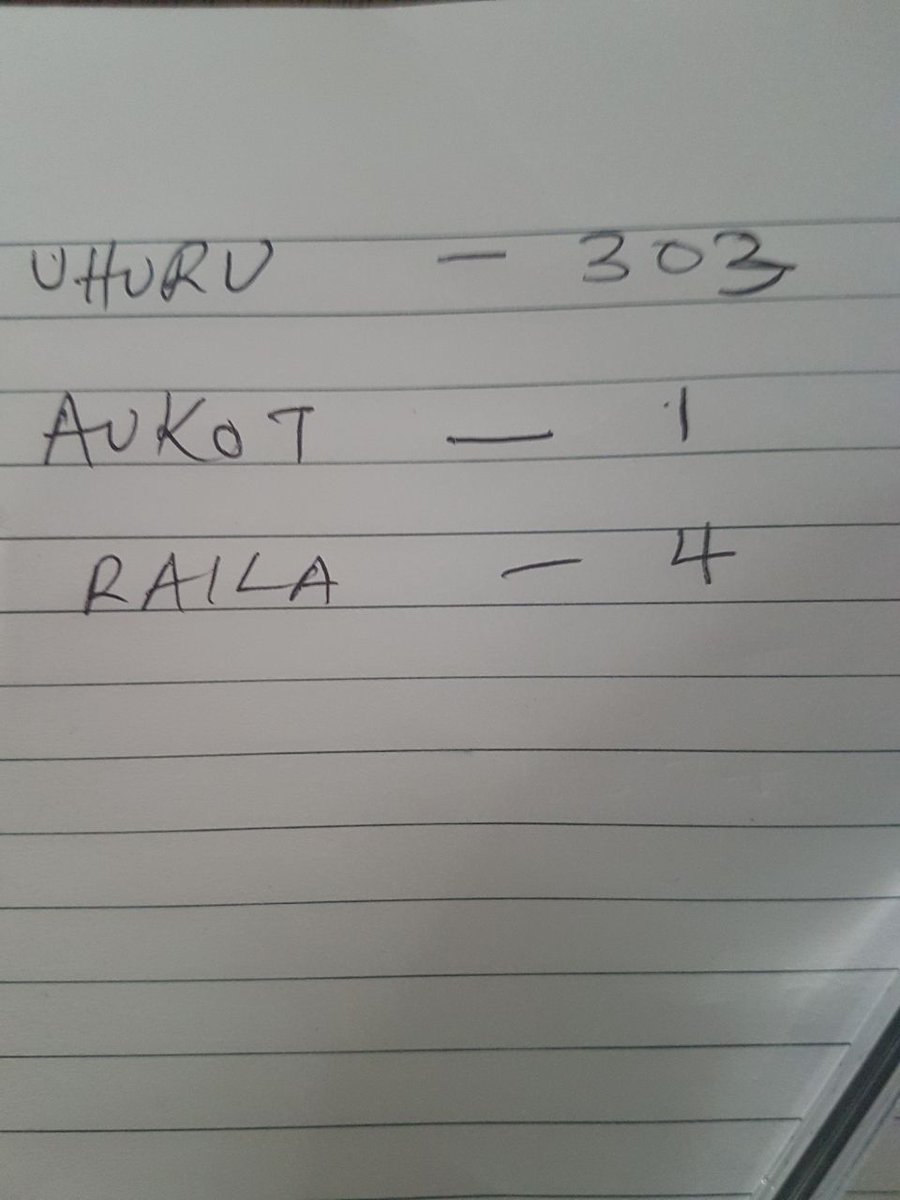 UHURU - 303
AUKOT - 1
RAILA - 4